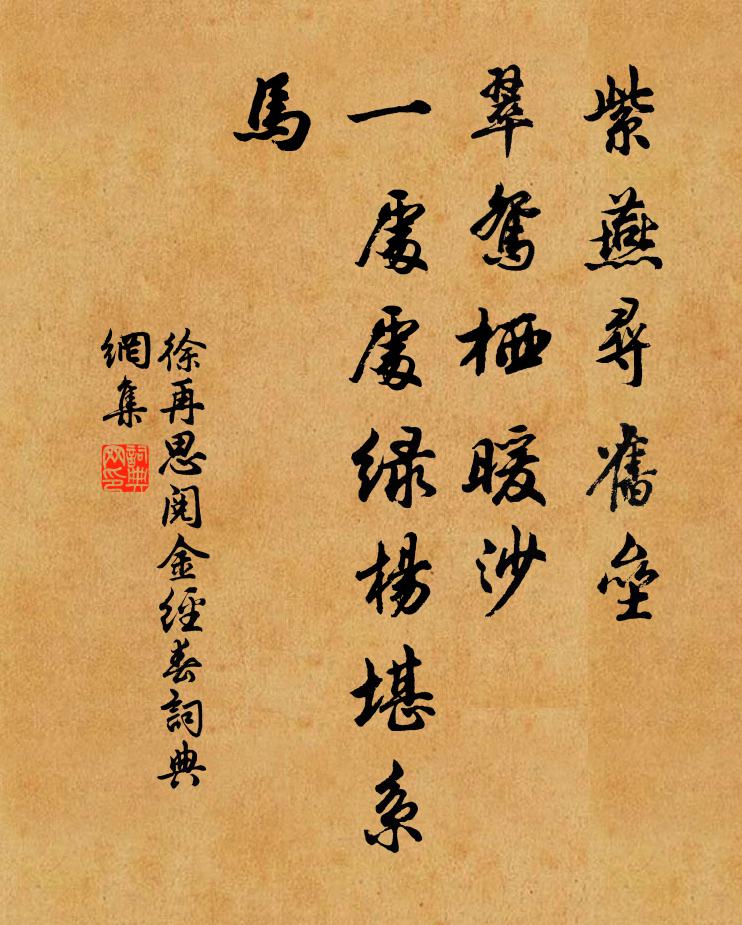 紫燕尋舊壘
翠鴛栖暖沙
一處處綠楊堪系
馬
徐再思閱金經春詞典
網集
詞典
网印